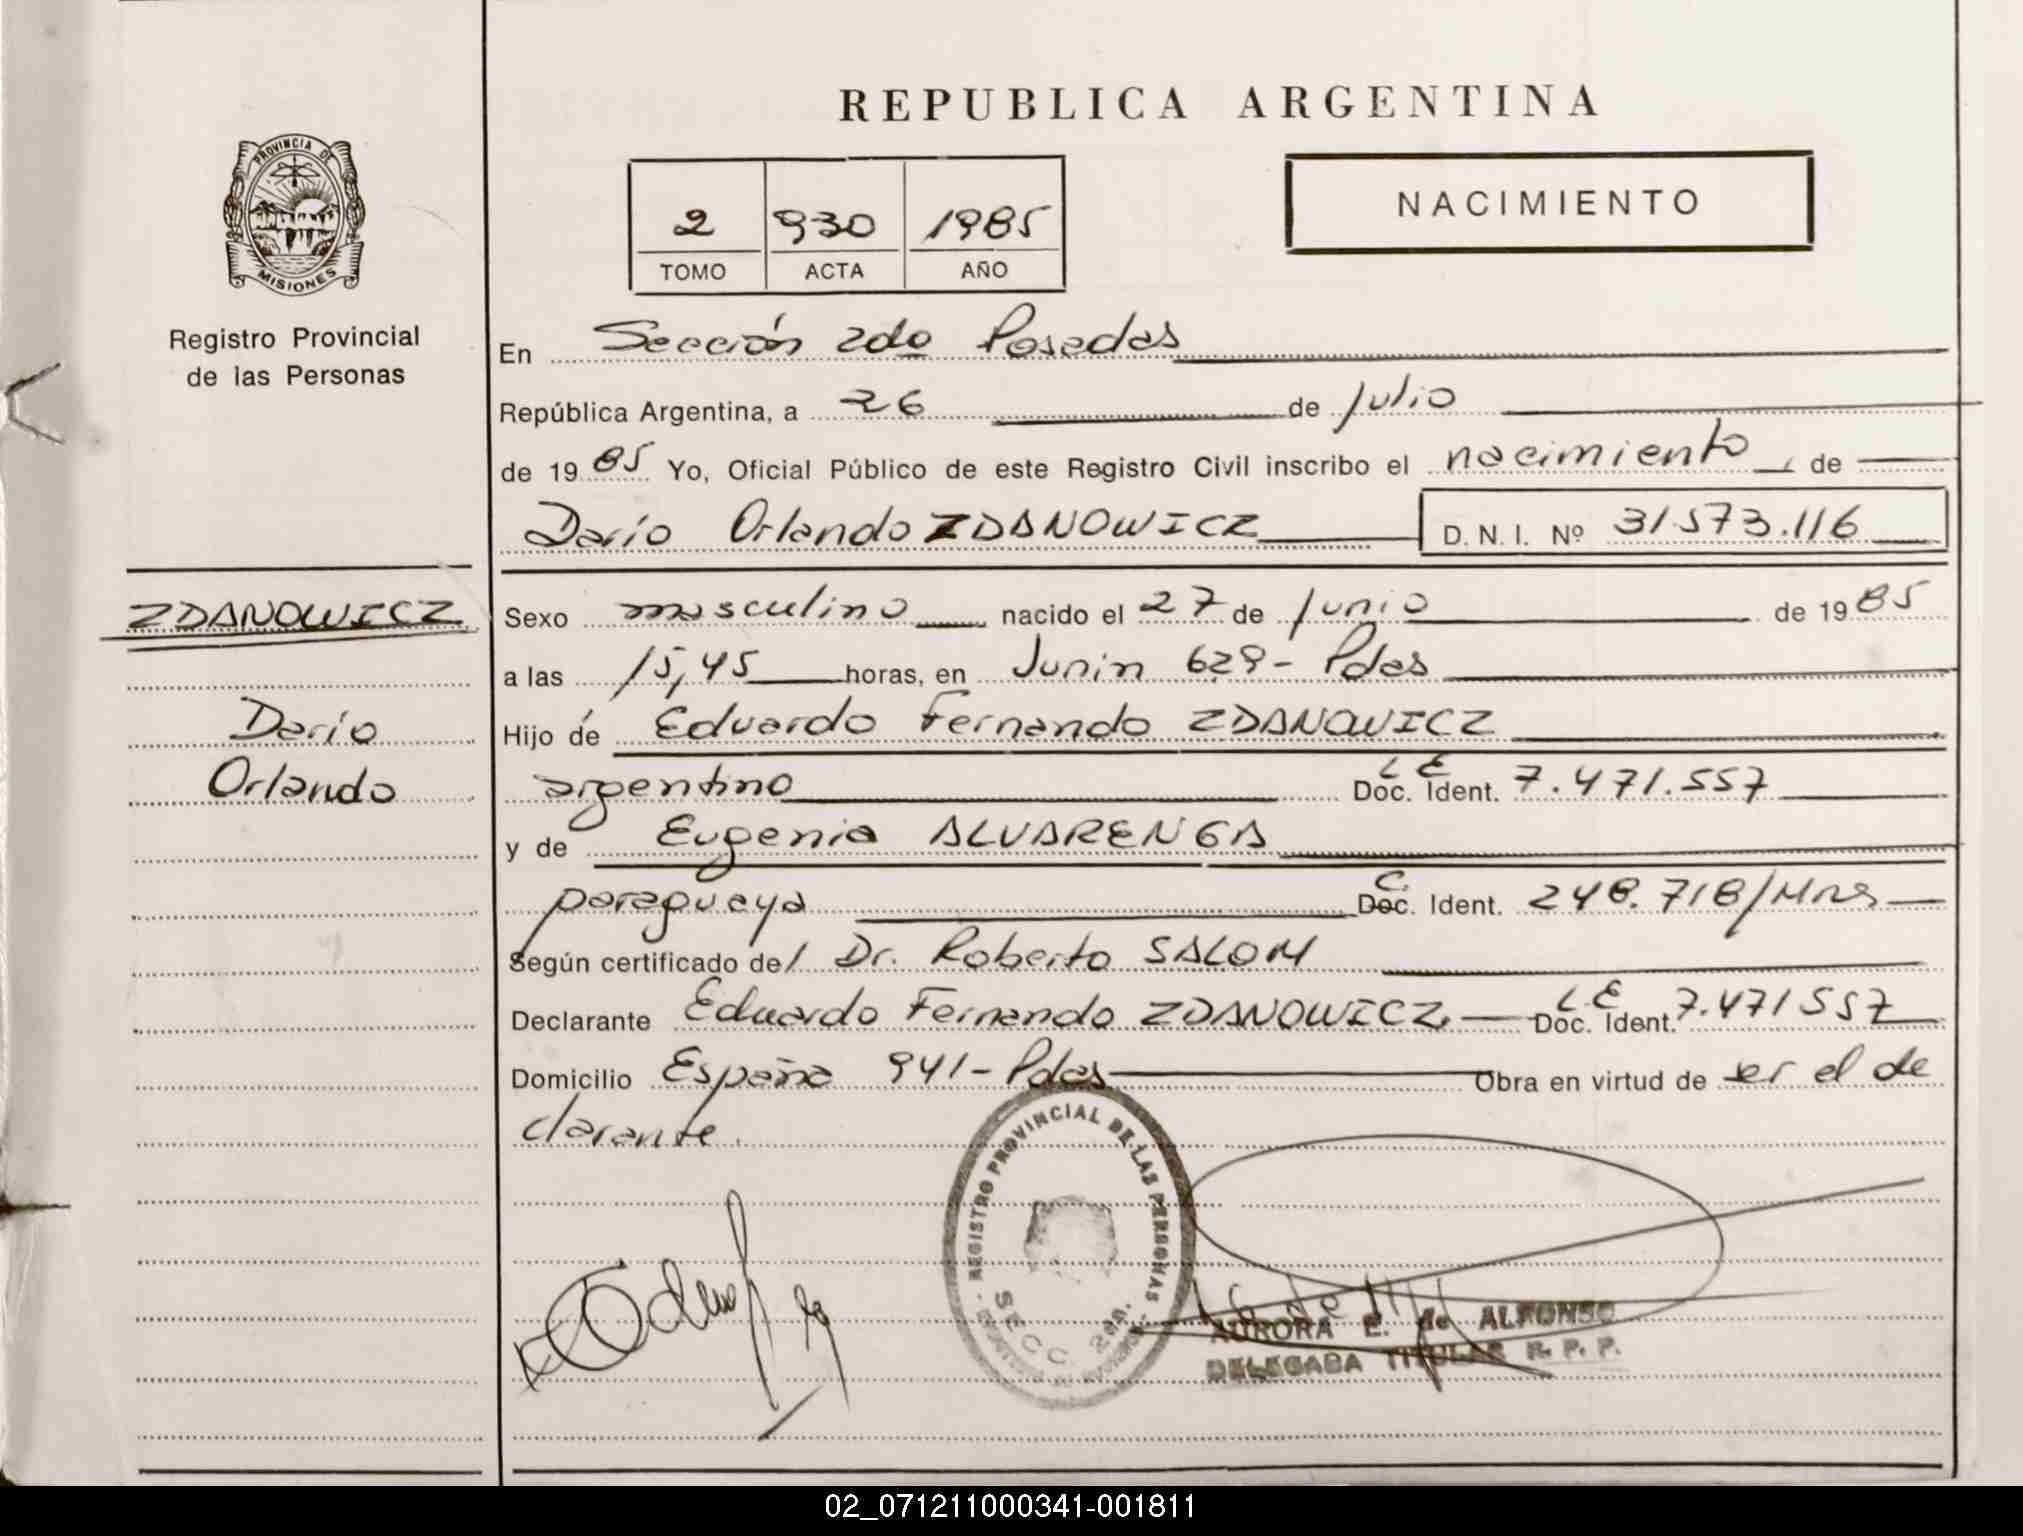 REPUBLICA ARGENTINA
PROVINCIA DE
MISIONES
Registro Provincial
de las Personas
2 930 1985
TOMO ACTA AÑO
NACIMIENTO
En Sección 2do Posadas
República Argentina, a 26 de Julio
de 1985 Yo, Oficial Público de este Registro Civil inscribo el nacimiento, de
Darío Orlando ZDANOWICZ D. N. I. Nº 31573.116
ZDANOWICZ
Darío
Orlando
Sexo masculino nacido el 27 de Junio de 1985
a las 15,45 horas, en Junin 629- Pdas
Hijo de Eduardo Fernando ZDANOWICZ
argentino L E Doc. Ident. 7.471.557
y de Eugenia ALVARENGA
paraguaya C. Doc. Ident. 248.718/Mnes
Según certificado del Dr. Roberto SALOM
Declarante Eduardo Fernando ZDANOWICZ L E Doc. Ident. 7.471557
Domicilio España 941- Pdas Obra en virtud de ser el de
clarante.
REGISTRO PROVINCIAL DE LAS PERSONAS
SECC. 2da.
AURORA E. de ALFONSO
DELEGADA TITULAR R. P. P.
02_071211000341-001811